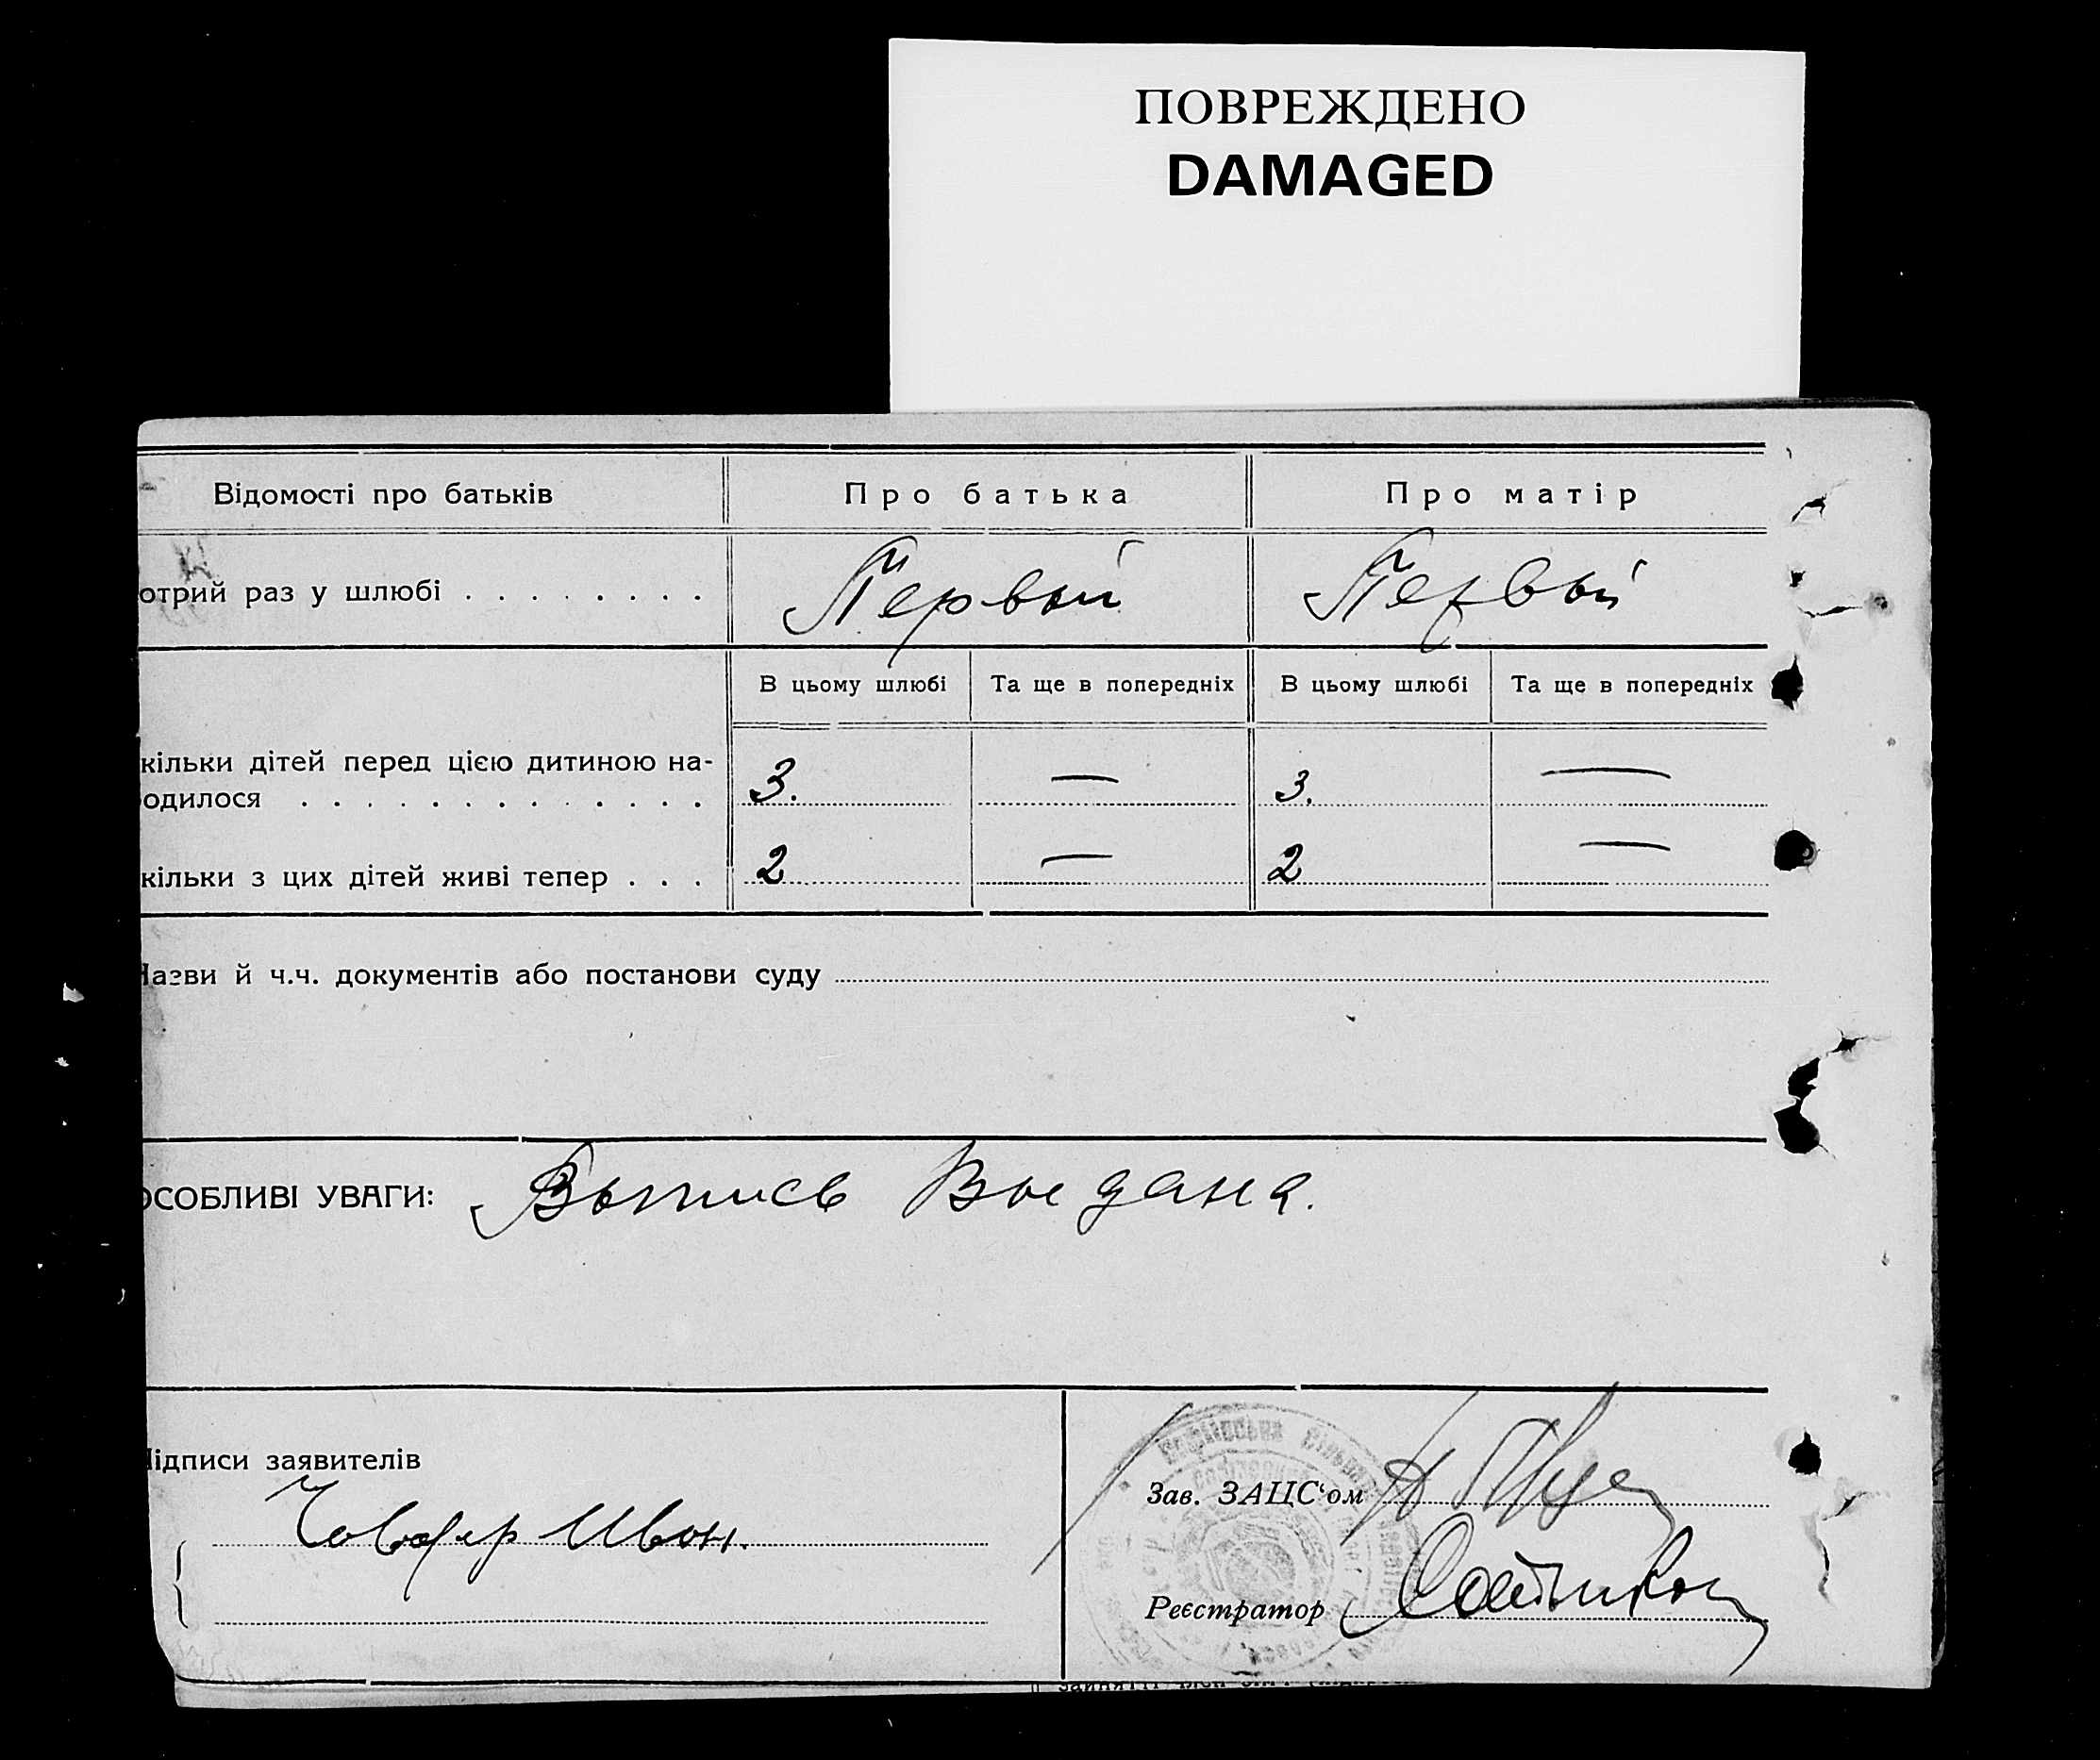 ПОВРЕЖДЕНО
DAMAGED
Відомості про батьків
Про батька
Про матір
отрий раз у шлюбі . . . . . . . .
Первый
Первый
В цьому шлюбі
Та ще в попередніх
В цьому шлюбі
Та ще в попередніх
кільки дітей перед цією дитиною на-
одилося . . . . . . . . . . . . .
3.
—
3.
—
кільки з цих дітей живі тепер . . .
2
—
2
—
Назви й ч.ч. документів або постанови суду
ОСОБЛИВІ УВАГИ:
Выпись Выдана.
Підписи заявителів
Зав. ЗАЦС‘ом
Реєстратор